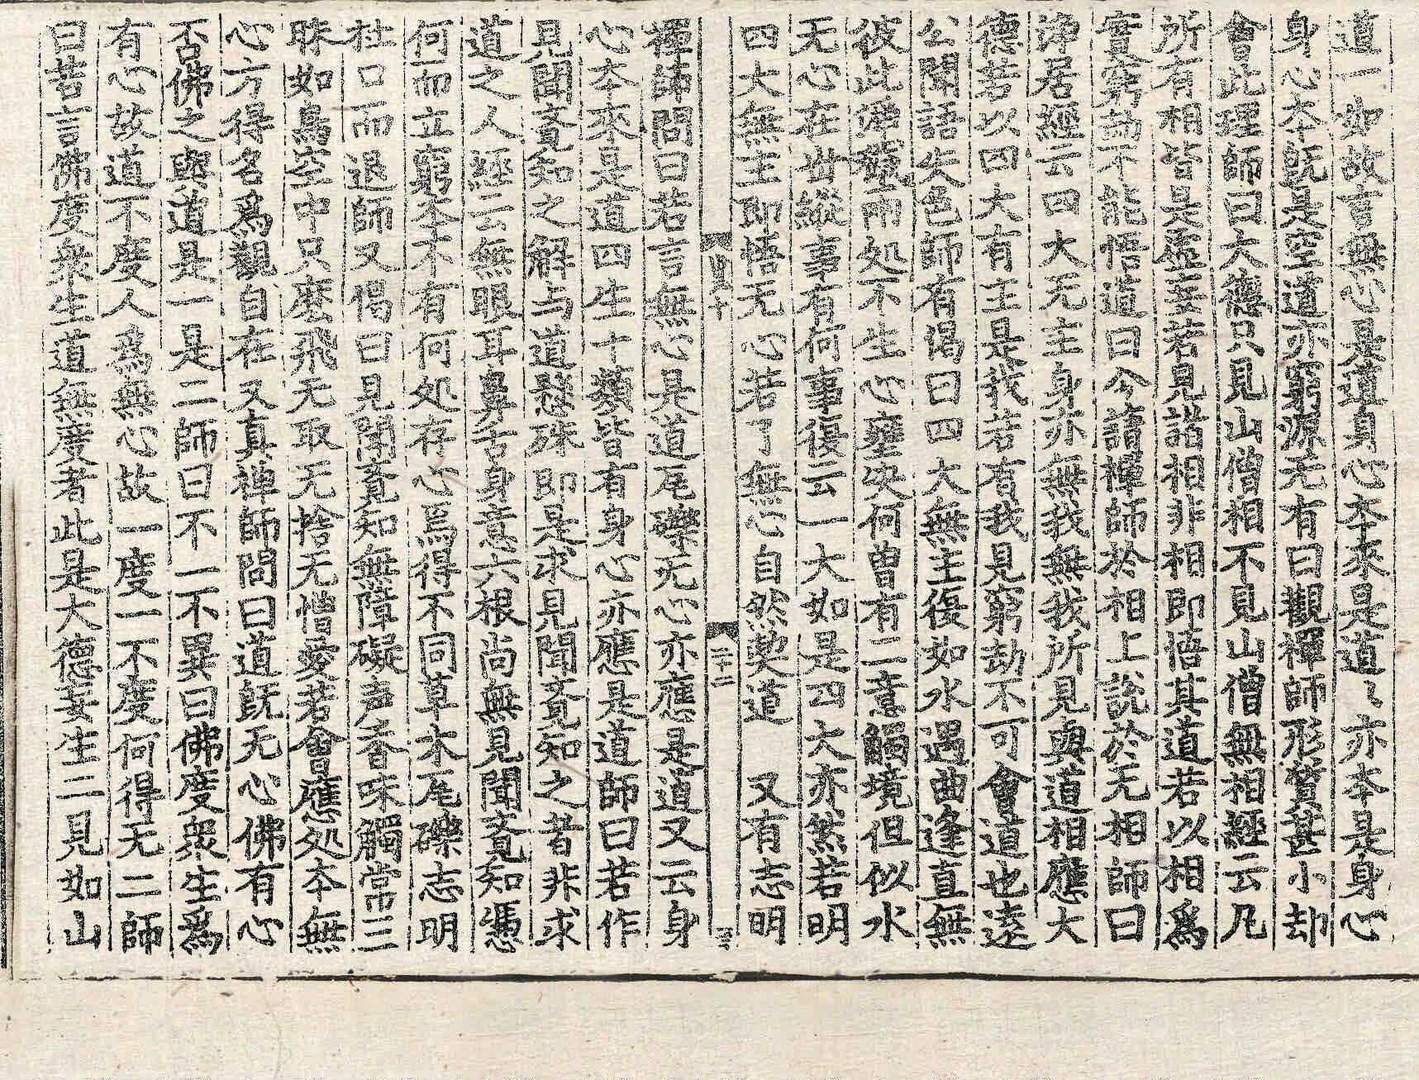 道一如故言無心是道身心本來是道〻亦本是身心
身心本既是空道亦窮源无有曰觀禪師形質甚小却
會此理師曰大德只見山僧相不見山僧無相經云凡
所有相皆是虛妄若見諸相非相即悟其道若以相爲
實窮劫不能悟道曰今請禪師於相上說於无相師曰
淨居經云四大无主身亦無我無我所見與道相應大
德若以四大有主是我若有我見窮劫不可會道也遠
公聞語失色師有偈曰四大無主復如水遇曲逢直無
彼此淨穢兩処不生心壅決何曾有二意觸境但似水
无心在世縱事有何事復云一大如是四大亦然若明
四大無主即悟无心若了無心自然契道 又有志明
寶十
二十二
禪師問曰若言無心是道瓦礫无心亦應是道又云身
心本來是道四生十類皆有身心亦應是道師曰若作
見聞覔知之解与道懸殊即是求見聞覔知之者非求
道之人經云無眼耳鼻舌身意六根尚無見聞覔知憑
何而立窮本不有何処存心爲得不同草木瓦礫志明
杜口而退師又偈曰見聞覔知無障礙声香味觸常三
昧如鳥空中只麽飛无取无捨无憎愛若會應処本無
心方得名爲觀自在又真禪師問曰道既无心佛有心
否佛之與道是一是二師曰不一不異曰佛度衆生爲
有心故道不度人爲無心故一度一不度何得无二師
曰若言佛度衆生道無度者此是大德妄生二見如山